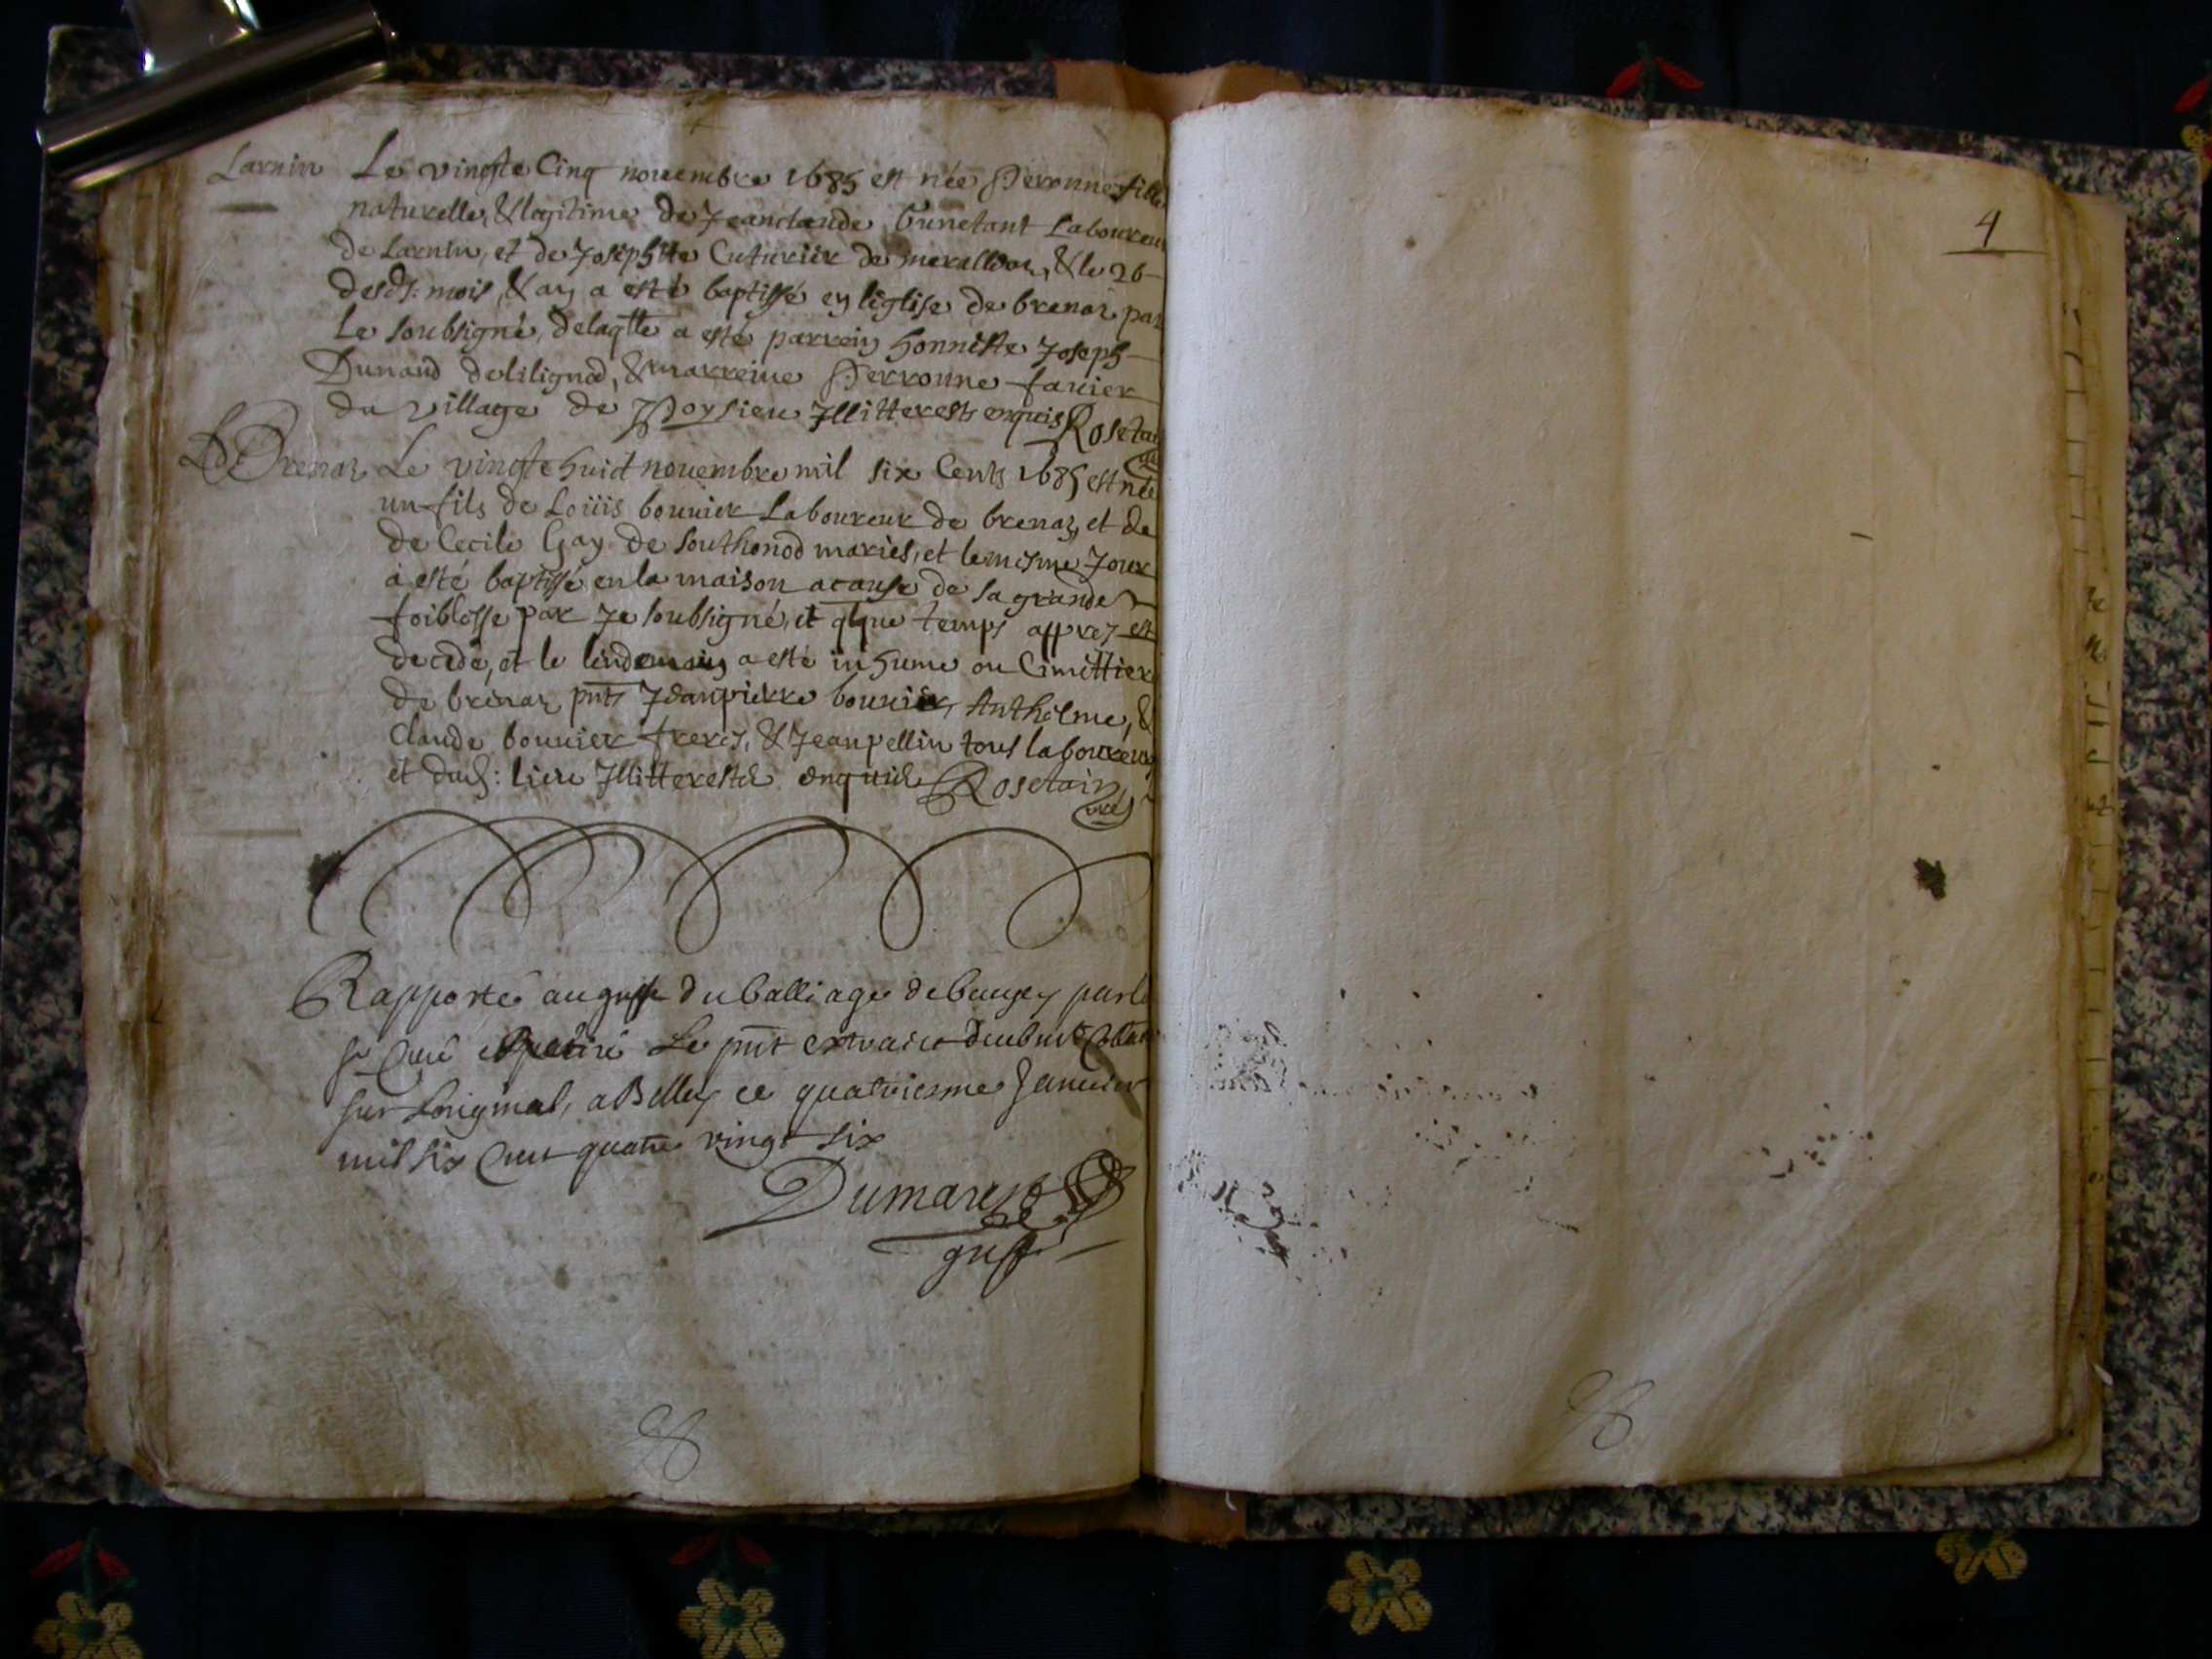 Larnin Le vingte Cinq nouembre 1685 est née Perronne fille
naturelle, & legitime de Jeanclaude Bunetant Laboureur
de Larnin, et de Josephtte Cuturier de & le 26
desd: mois, & an a esté baptissé en léglise de brenaz par
Le soubsigné, delaqlle a esté parrein honneste Joseph
Dunand delilignod, & marreine Perronne favier
du village de Poysieu Jllitterests enquis Rosetain
Brenaz Le vingte huict nouembre mil six Cents 1685 est née
un fils de Loüis bouuier Laboureur de brenaz, et de
de Cecile Gay de Southonod mariés, et le mesme Jour
a esté baptissé en la maison a cause de sa grande
foiblesse par Je soubsigné, et qlque temps apprez est
decedé, et le lendemain a esté inhume ou Cimettier
de brenaz pnts Jeanpierre bouuier, Anthelme, &
Claude bouuier freres, & Jeanpellin tous laboureurs
et dud: lieu Jllitterests enquis Rosetain
Rapporté au greffe du Balliage de baugey par le
sr Curé Le pnt extraict
sur Loriginal, a Belley ce quatriesme Januier
mil six Cent quatre vingt six
Dumarest
greff
4